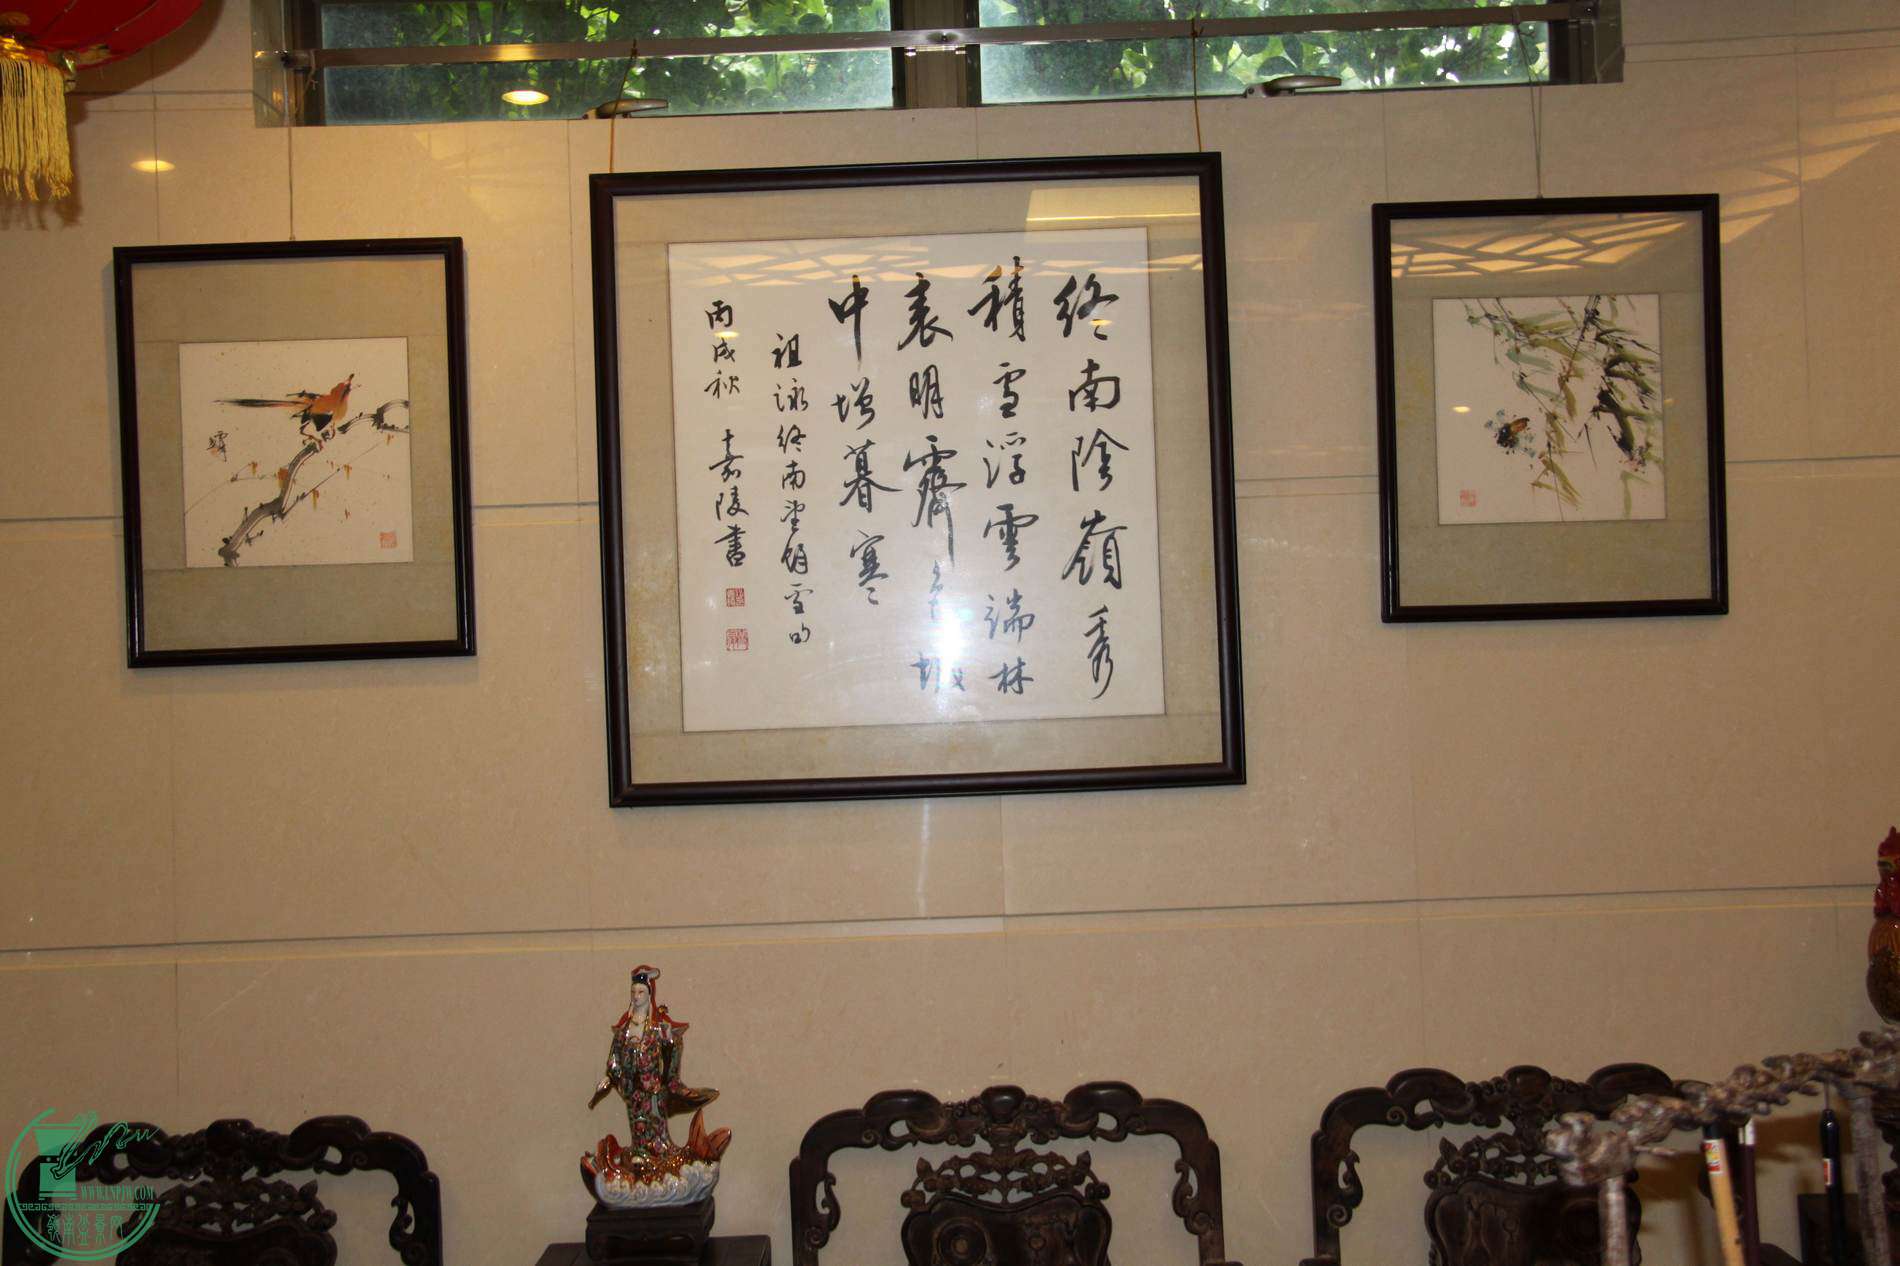 終南陰嶺秀
積雪浮雲端林
表明霽色城
中增暮寒
祖詠終南望餘雪
丙戌秋 嘉陵書
WWW.LNPJW.COM
嶺南盆景网